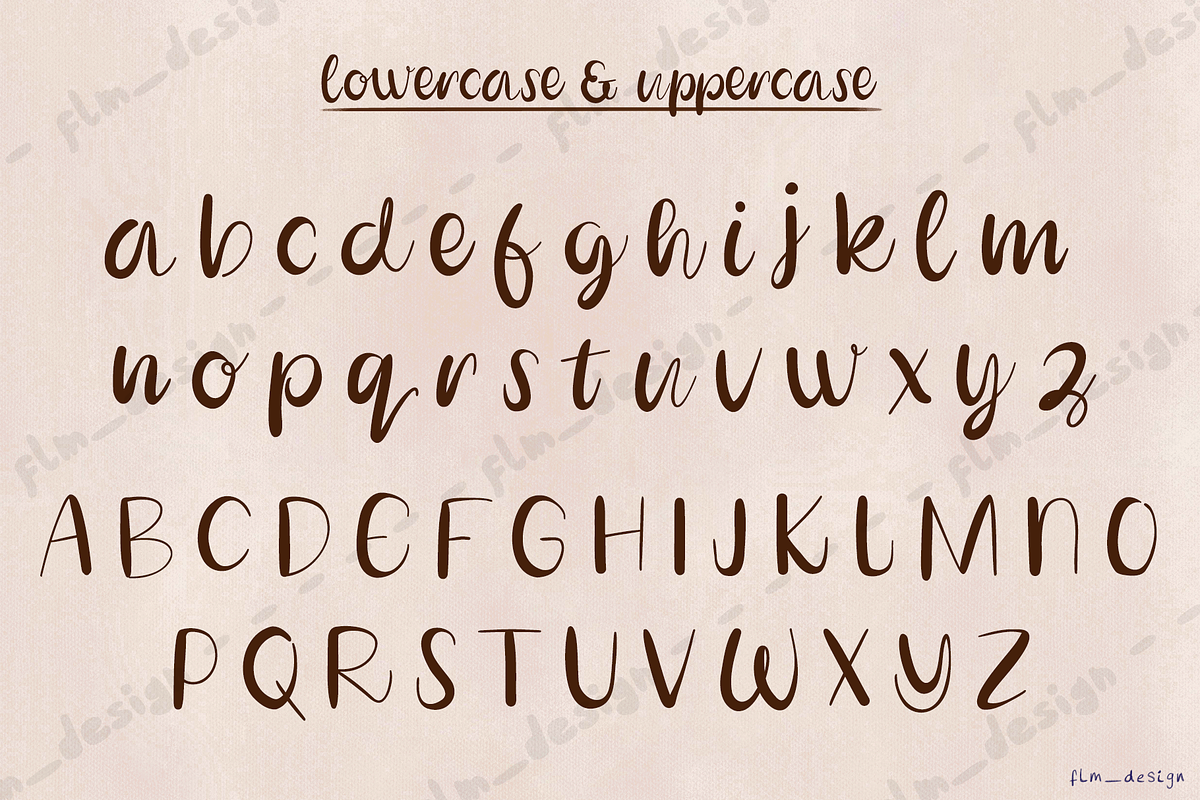 lowercase & uppercase
a b c d e f g h i j k l m
n o p q r s t u v w x y z
A B C D E F G H I J K L M N O
P Q R S T U V W X Y Z
flm_design